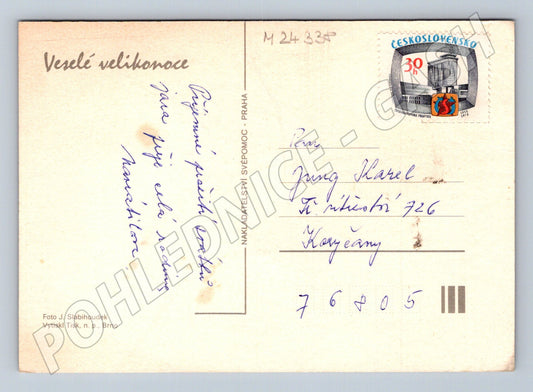 M 2433F
Veselé velikonoce
ČESKOSLOVENSKO
30
h
Příjemné prožití svátků
jara přeje celá rodina
NAKLADATELSTVÍ SVÉPOMOC - PRAHA
Pan
Jung Karel
Tř. vítězství 726
Koryčany
76805
Foto J. Slabihoudek
Vytiskl Tisk, n. p., Brno
POHLEDNICE - G